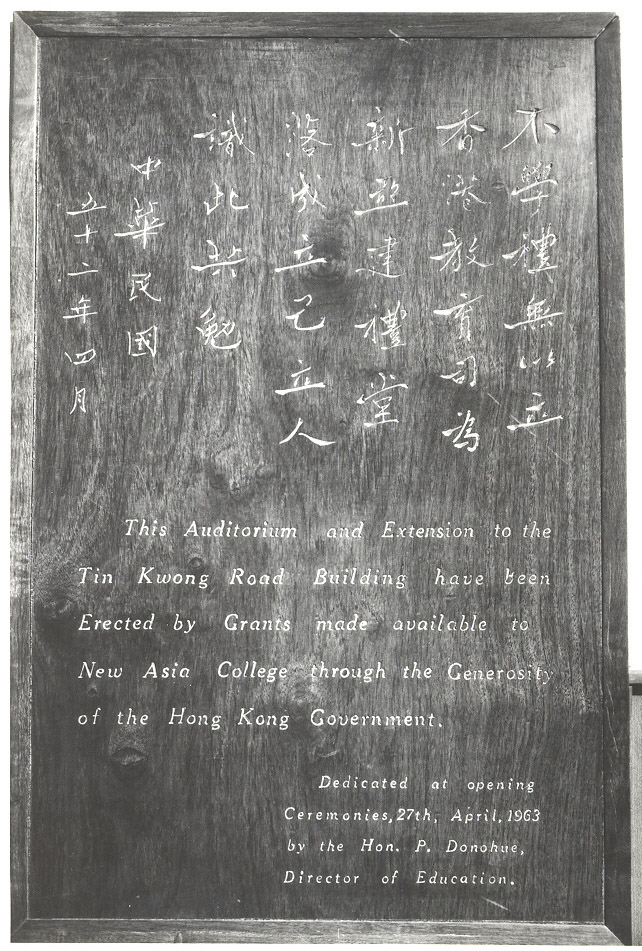 不學禮無以立
香港教育司為
新亞建禮堂
落成立己立人
識此共勉
中華民國
五十二年四月
This Auditorium and Extension to the
Tin Kwong Road Building have been
Erected by Grants made available to
New Asia College through the Generosity
of the Hong Kong Government.
Dedicated at opening
Ceremonies, 27th, April, 1963
by the Hon. P. Donohue,
Director of Education.